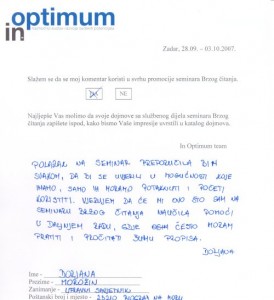 in optimum
Zadar, 28.09. – 03.10.2007.
Slažem se da se moj komentar koristi u svrhu promocije seminara Brzog čitanja.
DA NE
Najljepše Vas molimo da svoje dojmove sa službenog dijela seminara Brzog
čitanja zapišete ispod, kako bismo Vaše impresije uvrstili u katalog dojmova.
In Optimum team
POLAZAK NA SEMINAR PREPORUČILA BIH
SVAKOM, DA BI SE UVJERILI U MOGUĆNOSTI KOJE
IMAMO, SAMO IH MORAMO POTAKNUTI I POČETI
KORISTITI. VJERUJEM DA ĆE MI OVO ŠTO SAM NA
SEMINARU BRZOG ČITANJA NAUČILA POMOĆI
U DALJNJEM RADU, GDJE OSIM ČESTO MORAM
PRATITI I PROČITATI ŠUMU PROPISA.
DORJANA
Ime - DORJANA
Prezime - MOROŽIN
Zanimanje - UPRAVNI SAVJETNIK
Poštanski broj i mjesto - 23210 BIOGRAD NA MORU